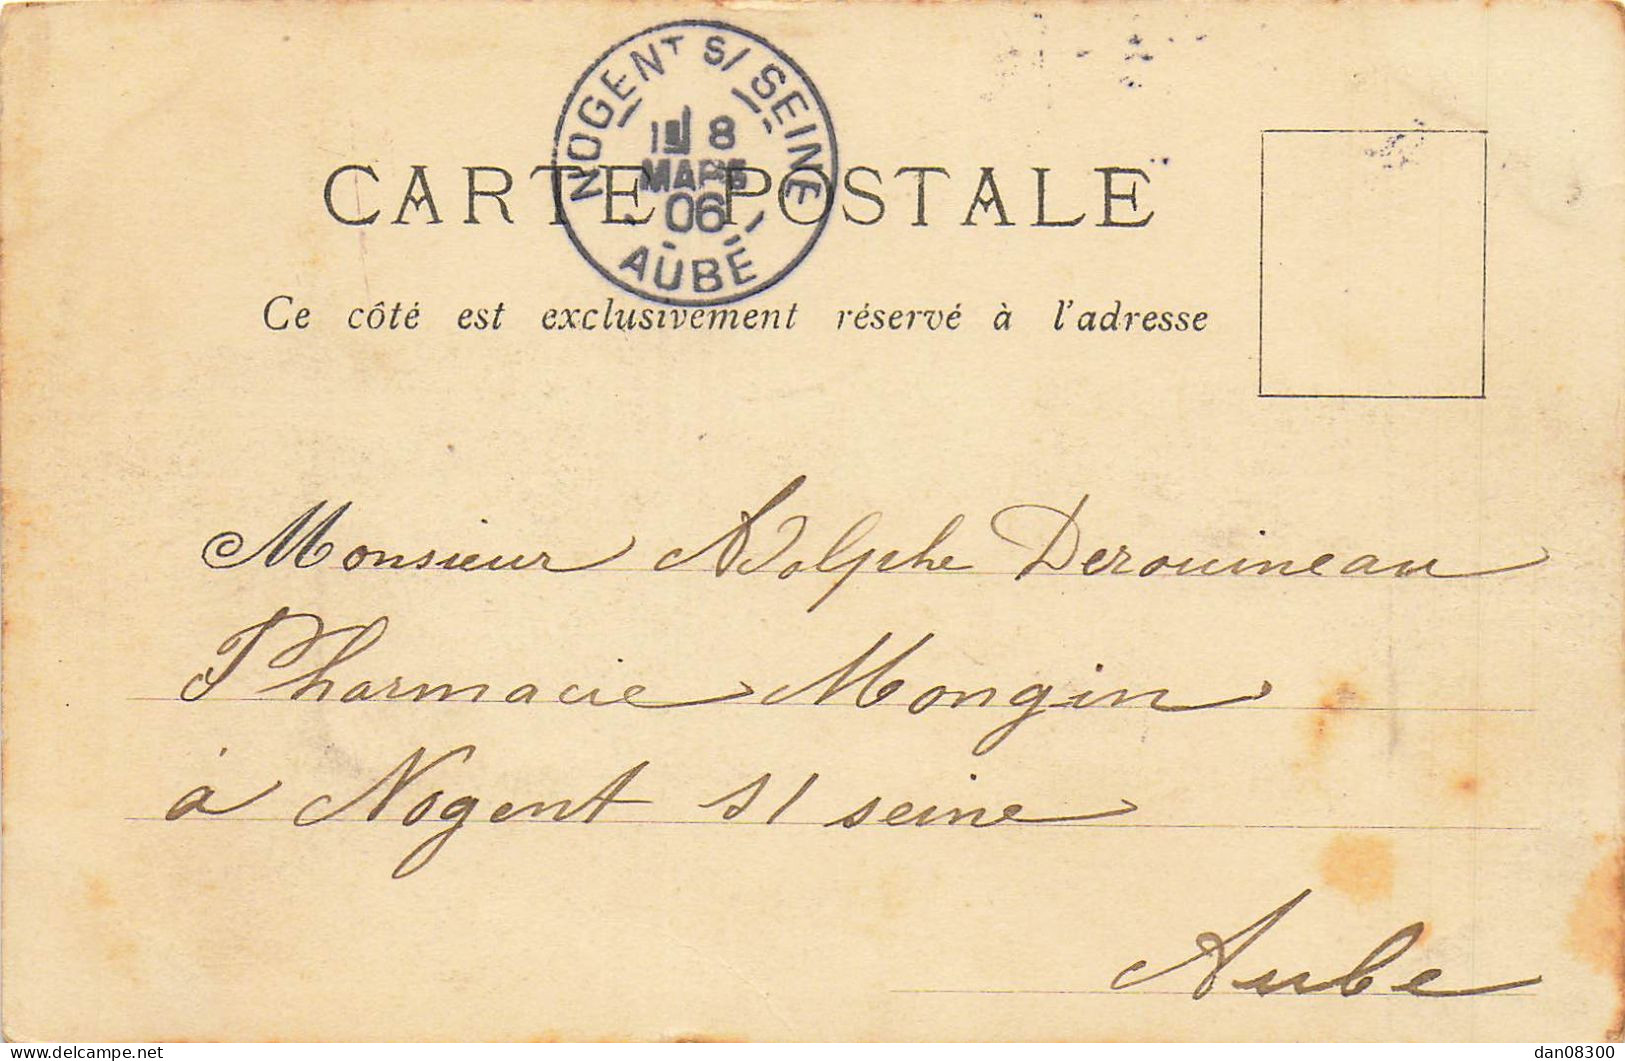 NOGENT S/ SEINE
8
MARS
06
AUBE
CARTE POSTALE
Ce côté est exclusivement réservé à l'adresse
Monsieur Adolphe Derouineau
Pharmacie Mongin
à Nogent s/ seine
Aube
delcampe.net
dan08300